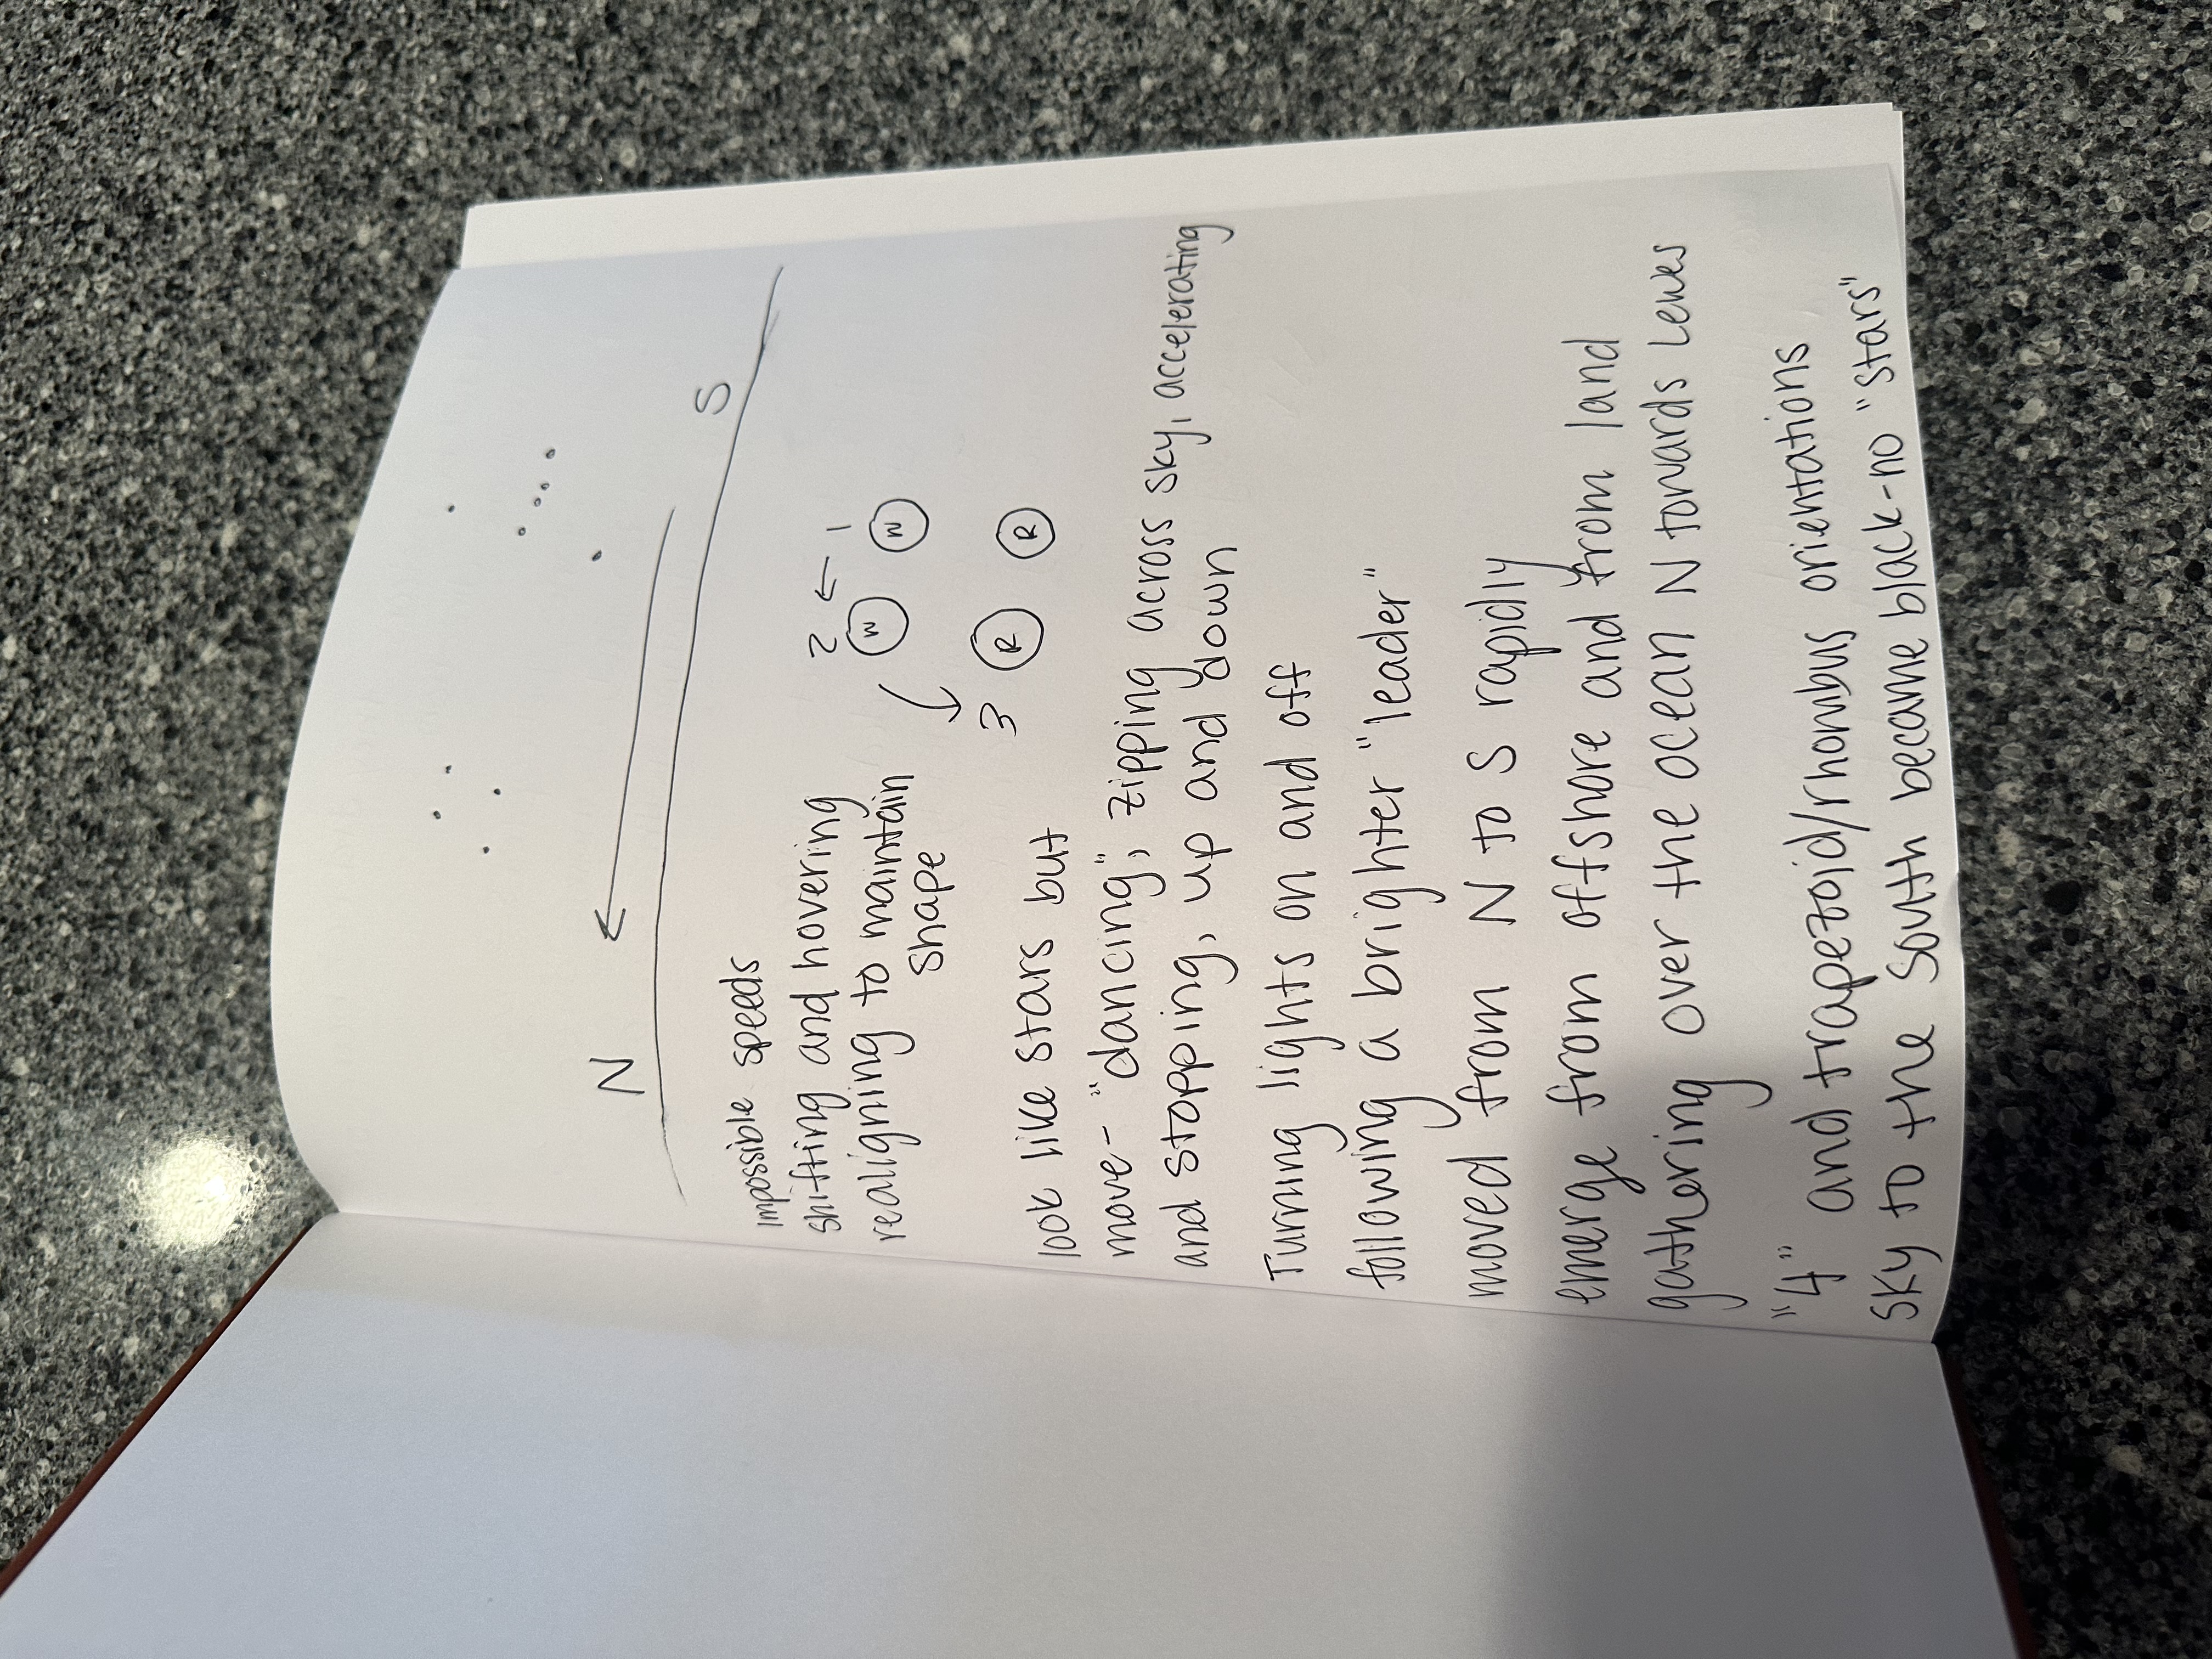 N S
Impossible speeds
shifting and hovering
realigning to maintain
shape
2 ← 1
W W
3 R R
look like stars but
move- "dancing", zipping across sky, accelerating
and stopping, up and down
Turning lights on and off
following a brighter "leader"
moved from N to S rapidly
emerge from offshore and from land
gathering over the ocean N towards Lewes
"4" and trapezoid/rhombus orientations
Sky to the South became black-no "stars"